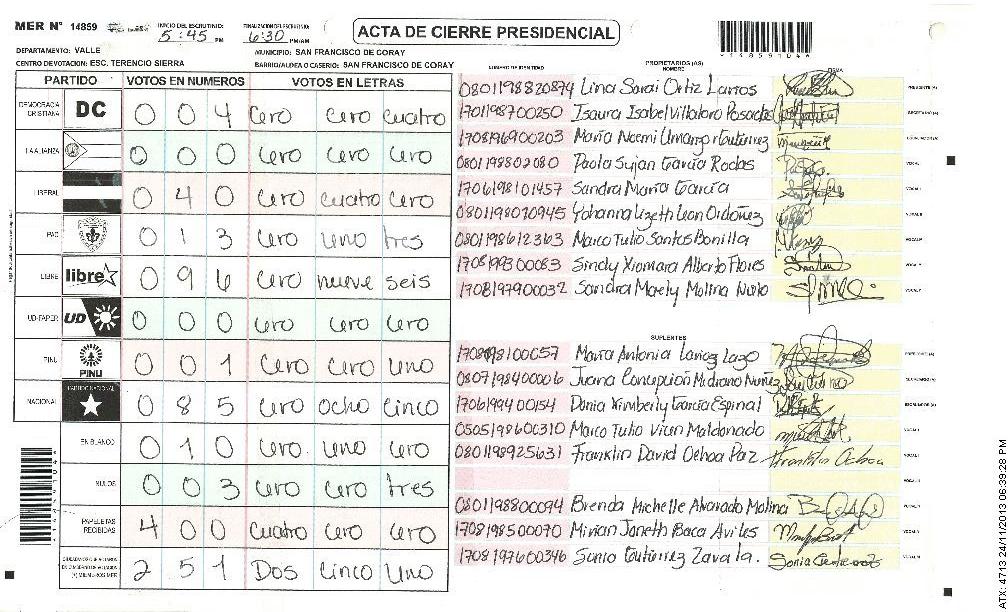 MER N° 14859 INICIO DEL ESCRUTINIO: 5:45 PM FINALIZACION DEL ESCRUTINIO: 6:30 PM/AM ACTA DE CIERRE PRESIDENCIAL
DEPARTAMENTO: VALLE MUNICIPIO: SAN FRANCISCO DE CORAY
CENTRO DE VOTACION: ESC. TERENCIO SIERRA BARRIO/ALDEA O CASERIO: SAN FRANCISCO DE CORAY
PARTIDO VOTOS EN NUMEROS VOTOS EN LETRAS
DEMOCRACIA CRISTIANA DC 0 0 4 Cero Cero Cuatro
LA ALIANZA 0 0 0 Cero Cero Cero
LIBERAL 0 4 0 Cero Cuatro Cero
PAC 0 1 3 Cero uno tres
LIBRE libre 0 9 6 Cero nueve seis
UD-FAPER UD 0 0 0 Cero Cero Cero
PINU PINU 0 0 1 Cero Cero Uno
NACIONAL PARTIDO NACIONAL 0 8 5 Cero Ocho Cinco
EN BLANCO 0 1 0 Cero Uno Cero
NULOS 0 0 3 Cero Cero tres
PAPELETAS RECIBIDAS 4 0 0 Cuatro Cero Cero
2 5 1 Dos Cinco Uno
NUMERO DE IDENTIDAD PROPIETARIOS (AS) NOMBRE FIRMA
0801198820874 Lina Sarai Ortiz Larios PRESIDENTE (A)
1701198700250 Isaura Isabel Villatoro Posadas SECRETARIO (A)
1708196900203 Maria Noemi Umanzor Gutierrez ESCRUTADOR (A)
0801198802080 Paola Suyan Garcia Rodas VOCAL I
1706198101457 Sandra Maria Garcia VOCAL II
0801198010945 Yohanna Lizeth Leon Ordoñez VOCAL III
0801198612363 Marco Tulio Santos Bonilla VOCAL IV
1708199300083 Sindy Xiomara Alberto Flores VOCAL V
1708197900032 Sandra Marely Molina
SUPLENTES
1708198100057 Maria Antonia Larioz Lazo PRESIDENTE (A)
0807198400006 Juana Concepcion Nuñez SECRETARIO (A)
1706199400154 Dania Kimberly Garcia Espinal ESCRUTADOR (A)
0505198600310 Marco Tulio Maldonado VOCAL I
0801198925631 Franklin David Ochoa Paz Franklin Ochoa VOCAL II
VOCAL III
0801198800094 Brenda Michelle Alvarado Molina
1708198500070 Mirian Janeth Baca Aviles
1708197600346 Sonia Gutierrez Zavala.
14859104
ATX: 4713 24/11/2013 06:39:28 PM